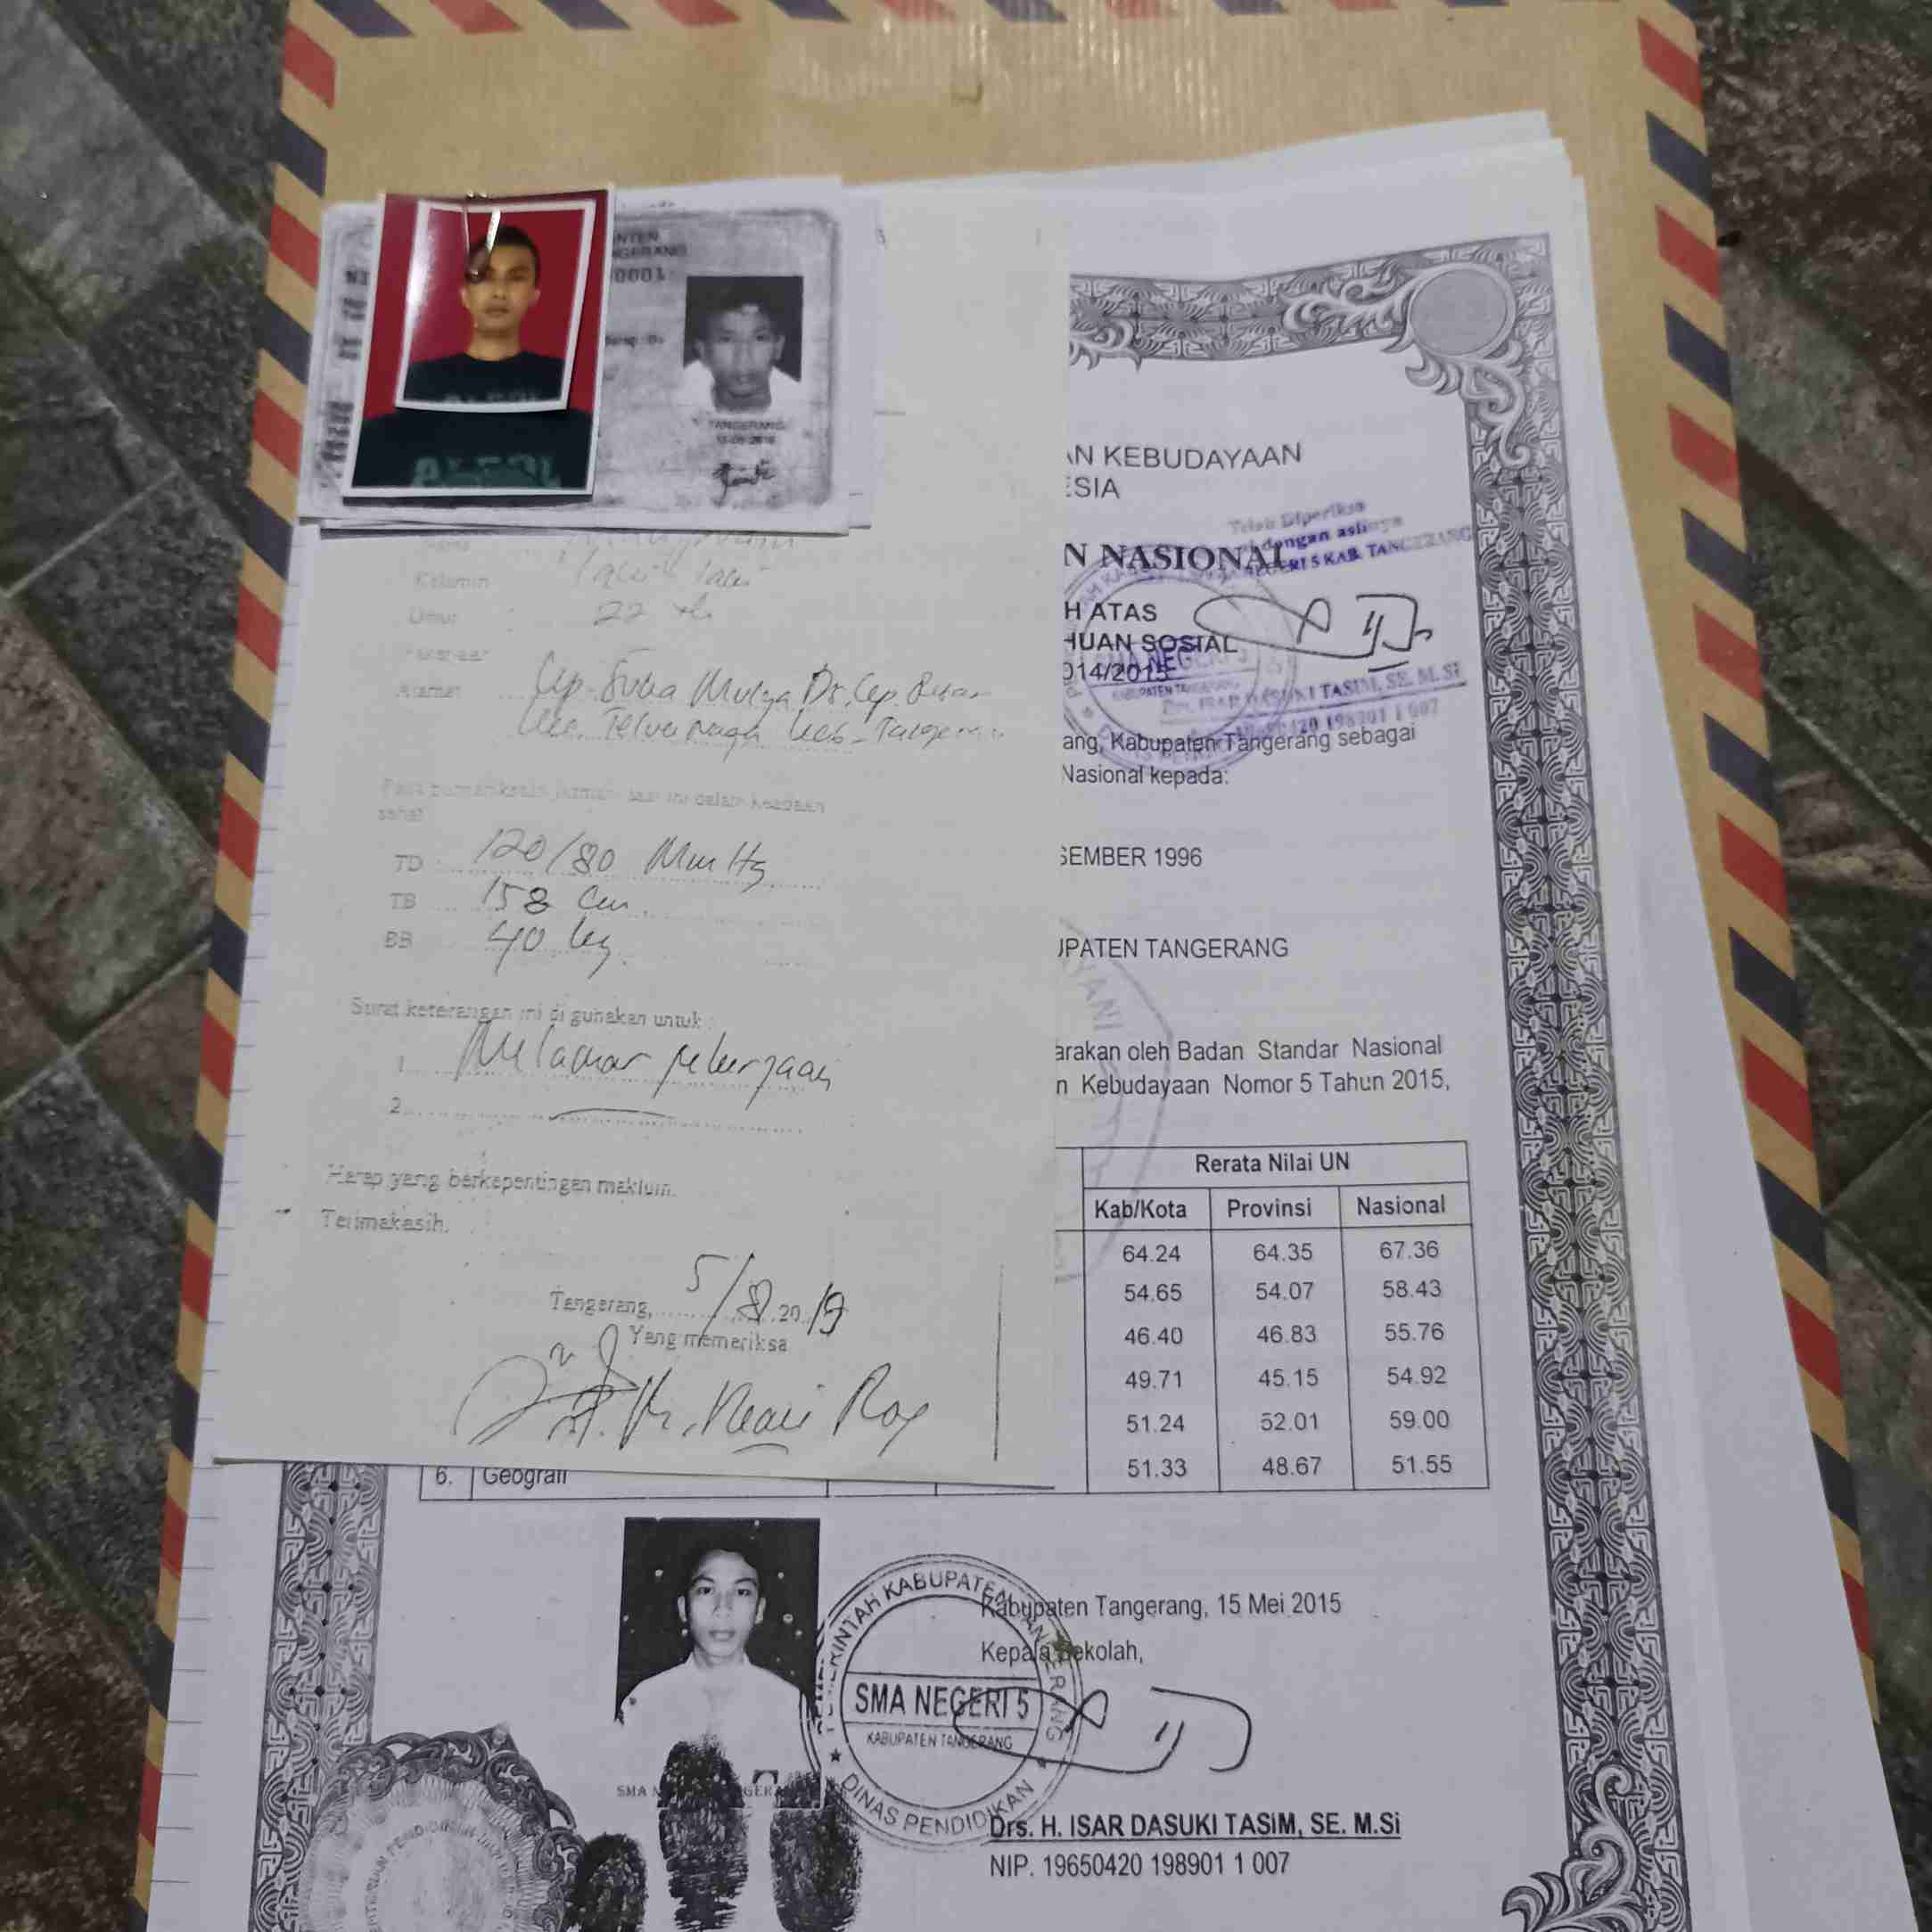 NTEN
NGERANG
0001
TANGERANG
Kelamin
22 th
Umur :
Alamat
TD 120/80 MmHg
TB 158 Cm
BB 40 kg
Surat keterangan ini di gunakan untuk :
1. Melamar pekerjaan
2.
Harap yang berkepentingan maklum.
Terimakasih.
Tangerang, 5/8 2019
Yang memeriksa
AN KEBUDAYAAN
ESIA
Telah Diperiksa
dengan aslinya
NEGERI 5 KAB. TANGERANG
N NASIONAL
H ATAS
HUAN SOSIAL
014/2015
SMA NEGERI 5
KABUPATEN TANGERANG
Drs. H. ISAR DASUKI TASIM, SE. M.Si
ang, Kabupaten Tangerang sebagai
Nasional kepada:
SEMBER 1996
UPATEN TANGERANG
arakan oleh Badan Standar Nasional
n Kebudayaan Nomor 5 Tahun 2015,
Rerata Nilai UN
Kab/Kota Provinsi Nasional
64.24 64.35 67.36
54.65 54.07 58.43
46.40 46.83 55.76
49.71 45.15 54.92
51.24 52.01 59.00
6. Geografi 51.33 48.67 51.55
Kabupaten Tangerang, 15 Mei 2015
Kepala Sekolah,
PEMERINTAH KABUPATEN TANGERANG
SMA NEGERI 5
KABUPATEN TANGERANG
DINAS PENDIDIKAN
Drs. H. ISAR DASUKI TASIM, SE. M.Si
NIP. 19650420 198901 1 007